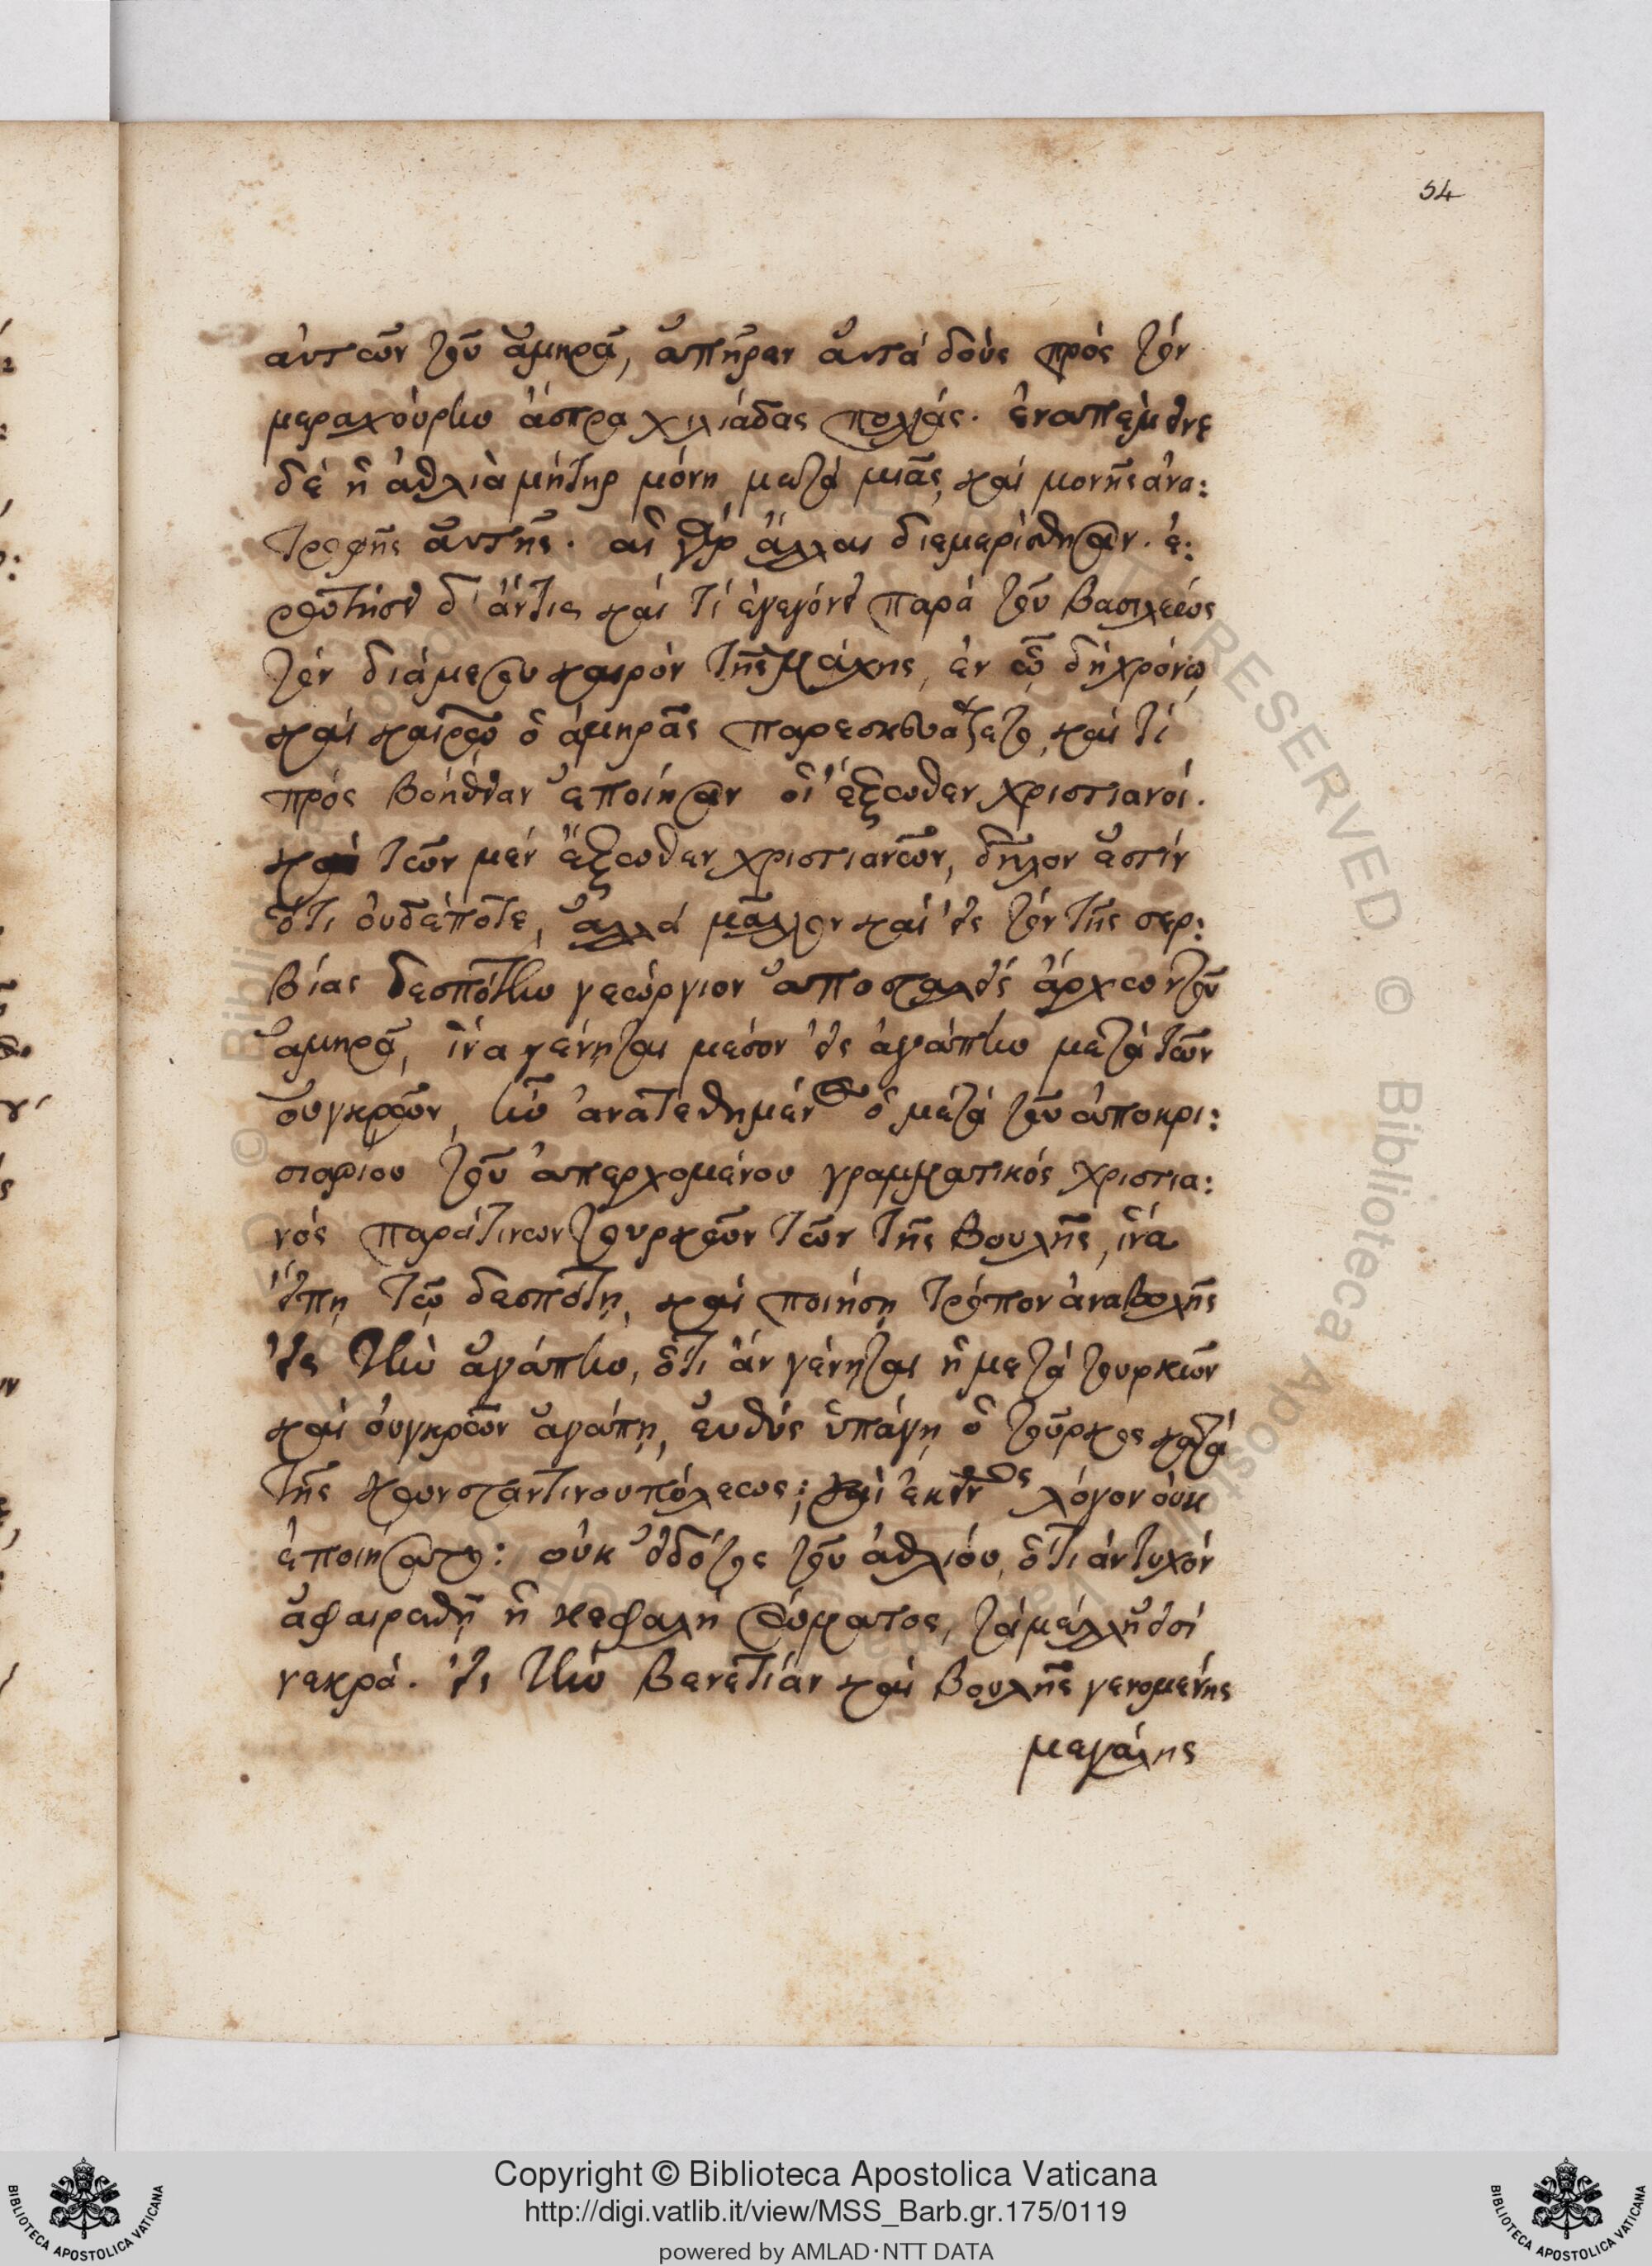 54
ἀυτῶν τοῦ ἀμηρᾶ, ἀπῆρεν ἀυτά δοὺς πρὸς τὸν
μεραχούρην ἄσπρα χιλιάδας πολλάς. ἐναπέμεινε
δὲ ἡ ἀθλιὰ μήτηρ μόνη μετὰ μιᾶς, καὶ μονῆς ἀνα:
τροφῆς ἀυτῆς. αἱ γὰρ ἄλλαι διεμερίσθησαν. ἐ:
ρωτήσει δ' ἄντις καὶ τί ἐγεγόνει παρὰ τοῦ βασιλέως
τὸν διάμεσου καιρὸν τῆς μάχης, ἐν ᾧ δὴ χρόνῳ
καὶ καιρῷ ὁ ἀμηρᾶς παρεσκευάζετο, καὶ τί
πρὸς βοήθειαν ἐποίησαν οἱ ἔξωθεν χριστιανοί.
καὶ τῶν μὲν ἔξωθεν χριστιανῶν, δῆλον ἐστίν
ὅτι ὀυδέποτε, ἀλλὰ μᾶλλον καὶ εἰς τὸν τῆς σερ:
βίας δεσπότην γεώργιον ἀποσταλεὶς ἄρχων τοῦ
ἀμηρᾶ, ἵνα γένηται μέσον εἰς ἀγάπην μετὰ τῶν
ὀυγκρῶν, ἦν ἀνατεθημένος ὁ μετὰ τοῦ ἀποκρι:
σιαρίου τοῦ ἀπερχομένου γραμματικός χριστια:
νός παρά τινων τουρκῶν τῶν τῆς βουλῆς, ἵνα
εἴπη τῷ δεσπότη, καὶ ποιήση τρόπον ἀναβολῆς
εἰς τὴν ἀγάπην, ὅτι ἂν γένηται ἡ μετὰ τουρκῶν
καὶ ὀυγκρῶν ἀγάπη, ἐυθύς ὑπάγη ὁ τοῦρκος κατὰ
τῆς κωνσταντινουπόλεως; καὶ ἐκεῖνος λόγον ὀυκ
ἐποιήσατο: οὐκ εἰδότος τοῦ ἀθλίου, ὅτι ἂν τυχόν
ἀφαιρεθῆ ἡ κεφαλὴ σώματος, τὰ μέλλη εἰσί
νεκρά. εἰς τὴν βενετίαν καὶ βουλῆς γενομένης
μεγάλης
Copyright © Biblioteca Apostolica Vaticana
http://digi.vatlib.it/view/MSS_Barb.gr.175/0119
powered by AMLAD·NTT DATA